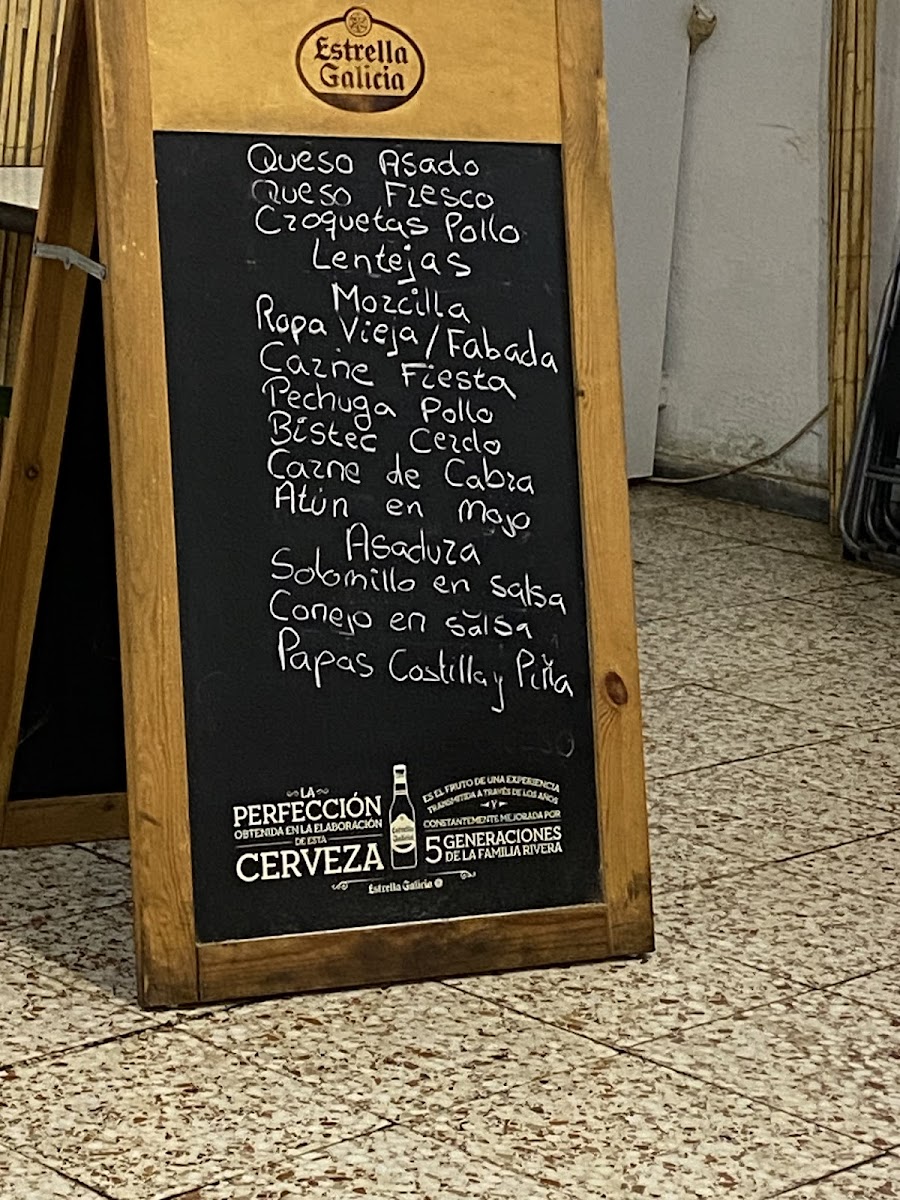 Estrella
Galicia
Queso Asado
Queso Fresco
Croquetas Pollo
Lentejas
Morcilla
Ropa Vieja/Fabada
Carne Fiesta
Pechuga Pollo
Bistec Cerdo
Carne de Cabra
Atún en Mojo
Asadura
Solomillo en salsa
Conejo en salsa
Papas Costilla y Piña
LA
PERFECCIÓN
OBTENIDA EN LA ELABORACIÓN
DE ESTA
CERVEZA
ES EL FRUTO DE UNA EXPERIENCIA
TRANSMITIDA A TRAVÉS DE LOS AÑOS
Y
CONSTANTEMENTE MEJORADA POR
5 GENERACIONES
DE LA FAMILIA RIVERA
Estrella Galicia